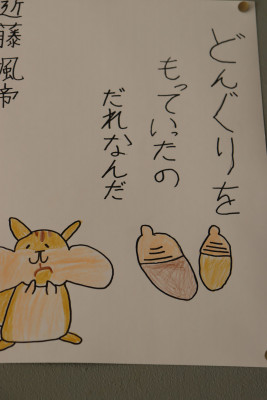 どんぐりを
もっていったの
だれなんだ
近藤風帝